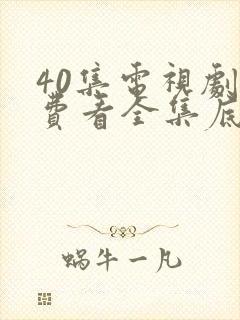 40集電視劇
費看全集底
蝸牛一凡